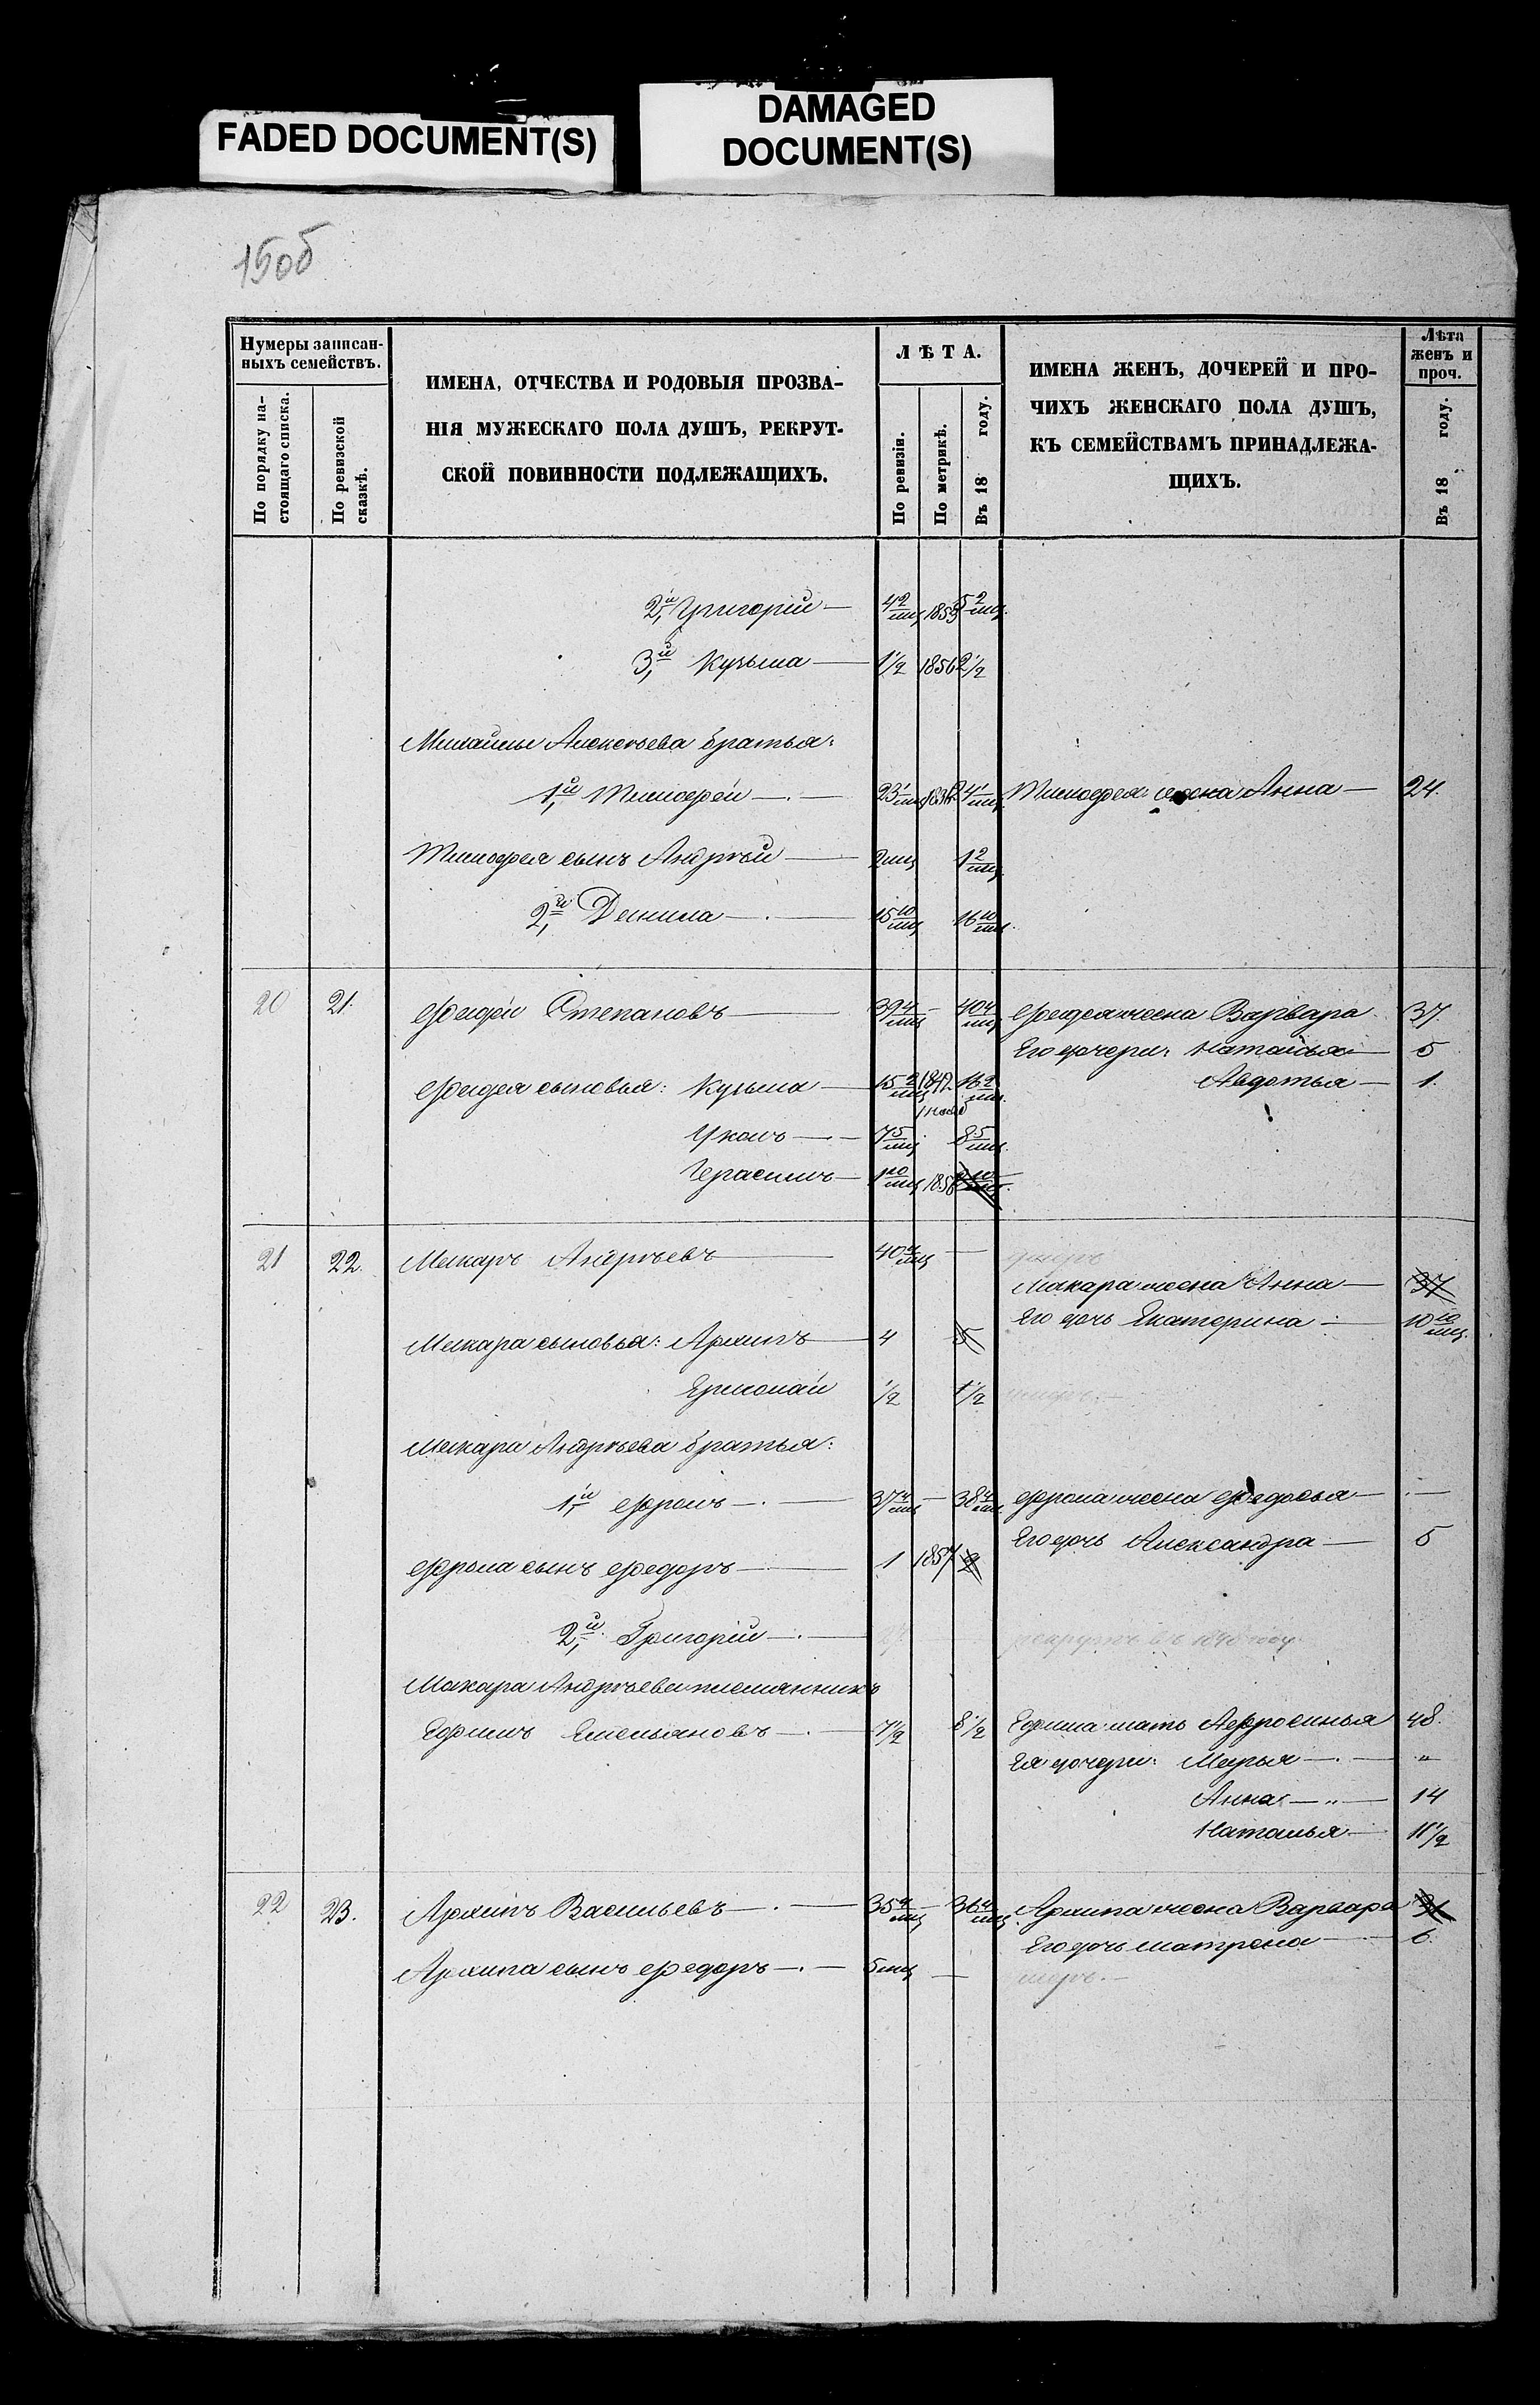 FADED DOCUMENT(S)
DAMAGED
DOCUMENT(S)
15об
Нумеры записан-
ныхъ семействъ.
По порядку на-
стоящаго списка.
По ревизской
сказкѣ.
ИМЕНА, ОТЧЕСТВА И РОДОВЫЯ ПРОЗВА-
НІЯ МУЖЕСКАГО ПОЛА ДУШЪ, РЕКРУТ-
СКОЙ ПОВИННОСТИ ПОДЛЕЖАЩИХЪ.
ЛѢТА.
По ревизіи.
По метрикѣ.
Въ 18 году.
ИМЕНА ЖЕНЪ, ДОЧЕРЕЙ И ПРО-
ЧИХЪ ЖЕНСКАГО ПОЛА ДУШЪ,
КЪ СЕМЕЙСТВАМЪ ПРИНАДЛЕЖА-
ЩИХЪ.
Лѣта
женъ и
проч.
Въ 18 году.
2й, Григорій — 4 2/мц 1853 5 2/мц.
3й, Кузьма — 1½ 1856 2½
Михайлы Алексѣева братья:
1й, Тимофей — 23 1/мц 24 1/мц Тимофея жена Анна — 24.
Тимофея сынъ Андрѣй — 2мц 1 2/мц
2й, Данила — 15 10/мц 16 10/мц.
20 21. Фадей Степановъ — 39 4/мц — 40 4/мц Фадея жена Варвара 37.
Его дочери: Наталья — 5
Фадея сыновья: Кузьма — 15 2/мц 1842 16 2/мц. Авдотья — 1.
7 5/мц 8 5/мц
Герасимъ — 1 10/мц 1856 2 10/мц.
21 22. Макаръ Андрѣевъ — 40 4/мц — умеръ
Макара жена Анна — 37
Его дочь Екатерина — 10 10/мц.
Макара сыновья: Архипъ — 4 5
Ермолай ½ 1½ умеръ. —
Макара Андрѣева братья:
1й, Фролъ — 37 4/мц — 38 4/мц Фрола жена Федосья — . —
Его дочь Александра — 5
Фрола сынъ Федоръ — 1 1857 2
2й, Григорій — рекрутъ въ году.
Макара Андрѣева племянникъ
Ефимъ Емельяновъ — 7½ 8½ Ефима мать Аффросинья 48.
Ея дочери: Марья — "
Анна — " — 14
Наталья — 11½
22 23. Архипъ Васильевъ — 35 4/мц — 36 4/мц Архипа жена Варвара 31
Его дочь Матрена — 6.
Архипа сынъ Федоръ — 5мц — умеръ. —